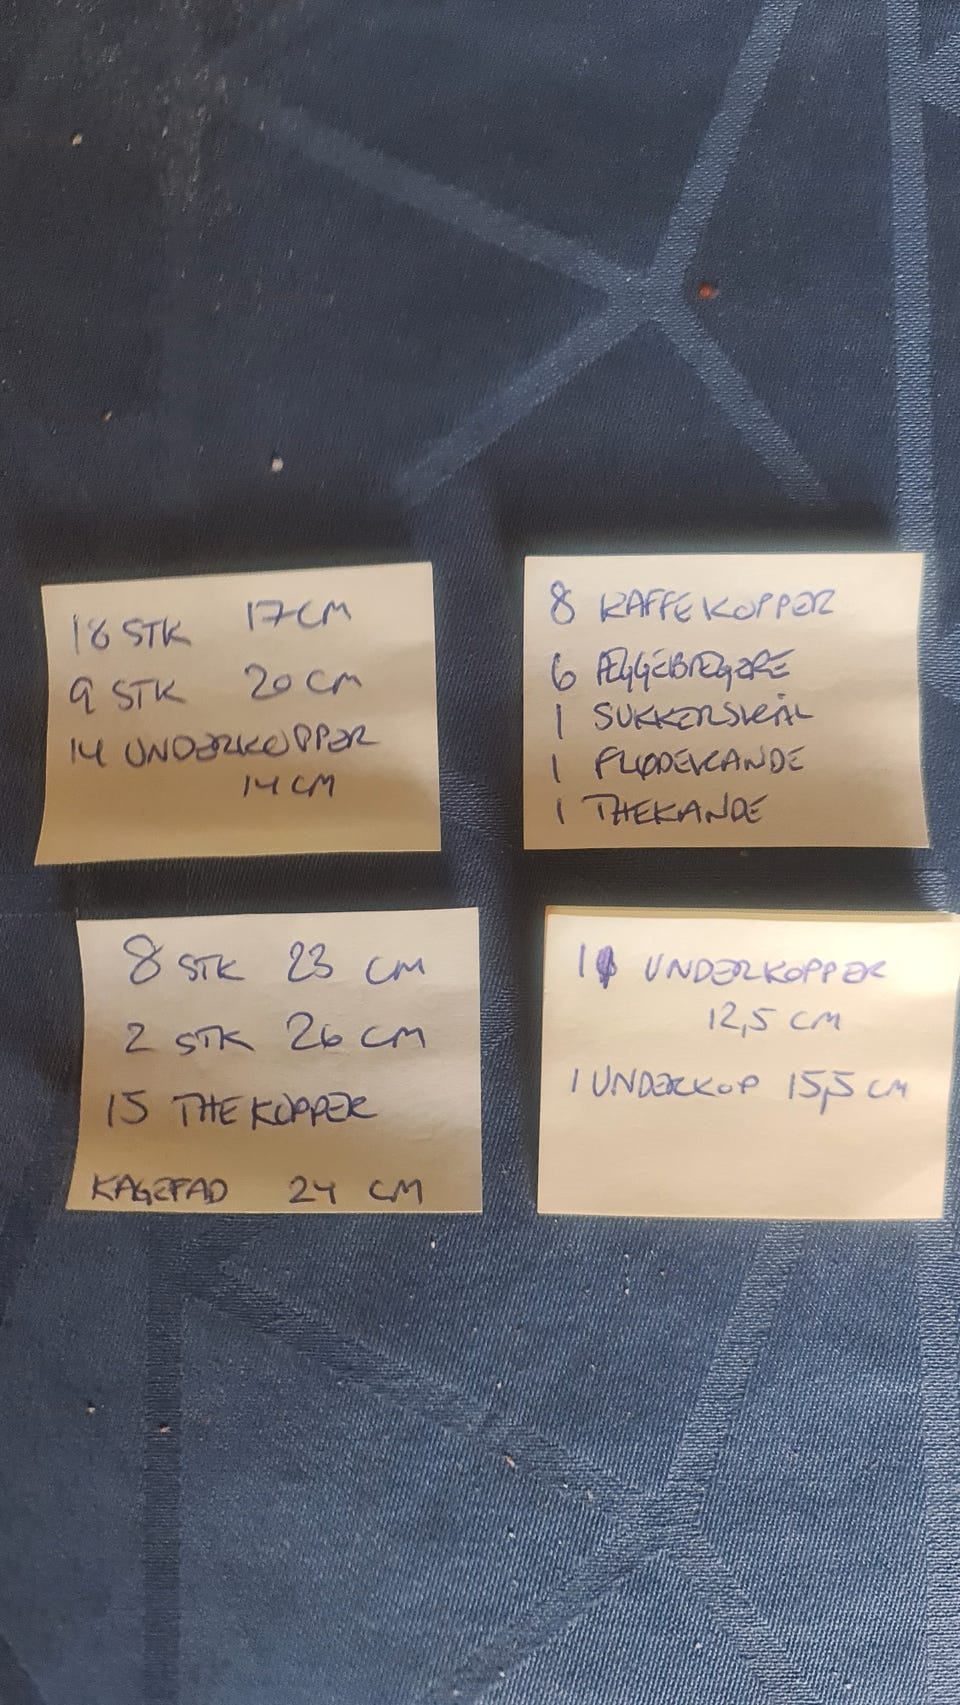 18 STK 17 CM
9 STK 20 CM
14 UNDERKOPPER
14 CM
8 KAFFEKOPPER
6 ÆGGEBÆGERE
1 SUKKERSKÅL
1 FLØDEKANDE
1 THEKANDE
8 STK 23 CM
2 STK 26 CM
15 THEKOPPER
KAGEFAD 24 CM
UNDERKOPPER
12,5 CM
1 UNDERKOP 15,5 CM